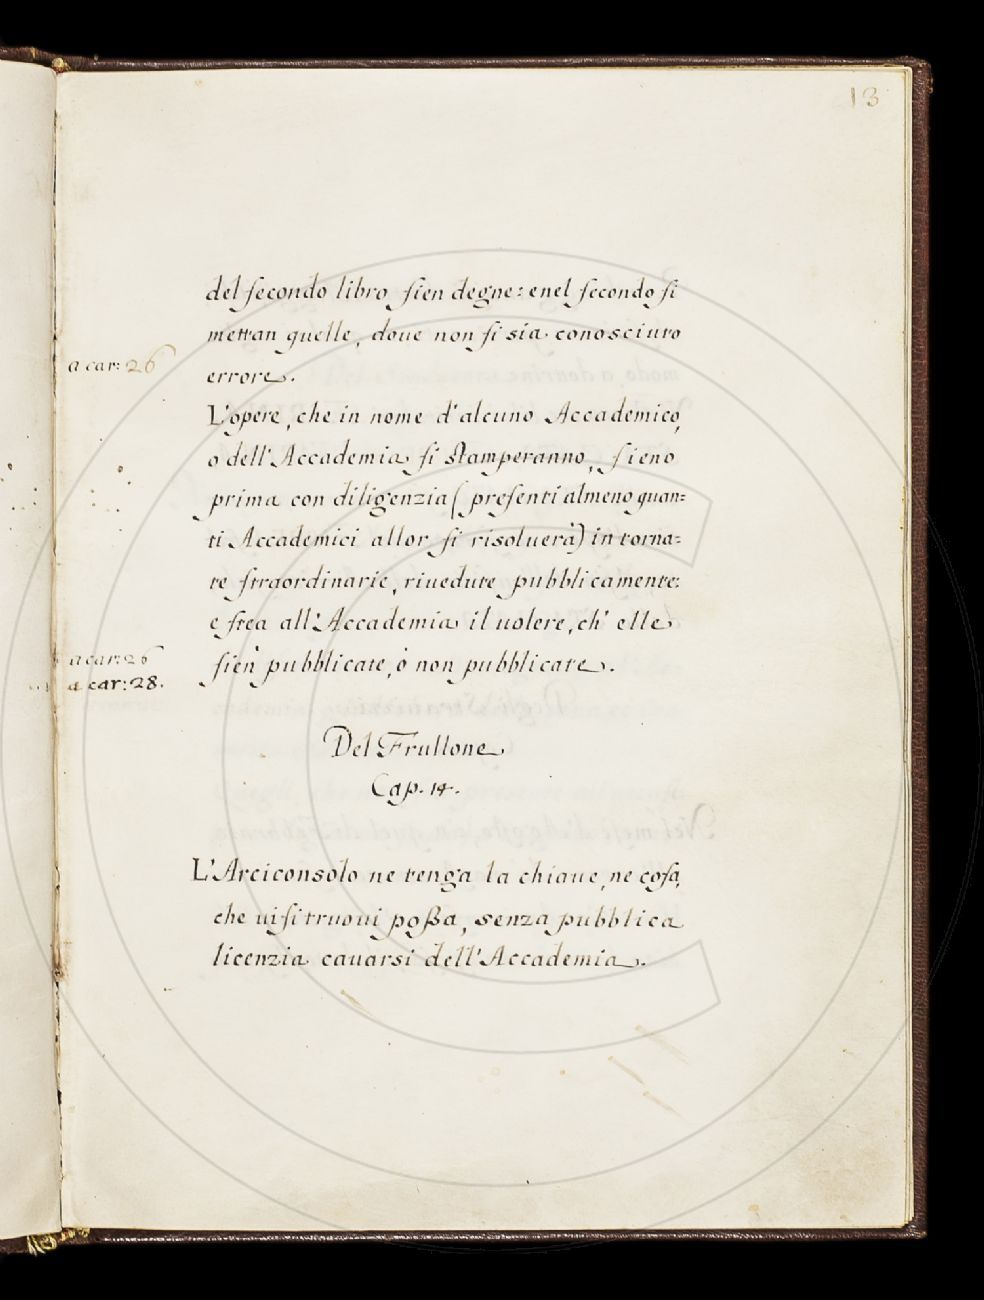 13
del secondo libro sien degne: e nel secondo si
mettan quelle, doue non si sia conosciuto
a car: 26
errore.
L'opere, che in nome d'alcuno Accademico,
o dell'Accademia si stamperanno, sieno
prima con diligenzia (presenti almeno quan=
ti Accademici allor si risoluerà) in torna=
te straordinarie, riuedute pubblicamente:
e stea all'Accademia il uolere, ch' elle
a car: 26
sien pubblicate, ò non pubblicate.
a car: 28.
Del Frullone
Cap. 14.
L'Arciconsolo ne tenga la chiaue, ne cosa,
che ui si truoui poßa, senza pubblica
licenzia cauarsi dell'Accademia.